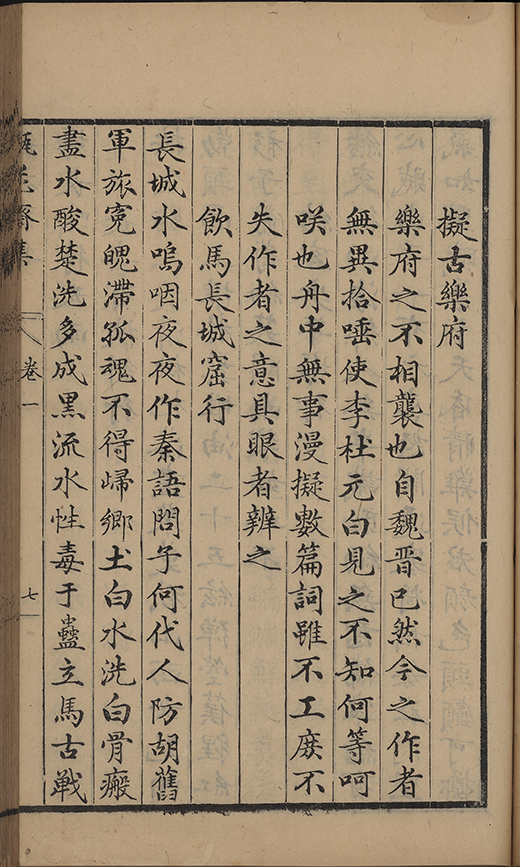 擬古樂府
樂府之不相襲也自魏晉已然今之作者
無異拾唾使李杜元白見之不知何等呵
咲也舟中無事漫擬數篇詞雖不工庻不
失作者之意具眼者辨之
飲馬長城窟行
長城水嗚咽夜夜作秦語問子何代人防胡舊
軍旅寃魄滯孤魂不得歸鄉土白水洗白骨瘢
盡水酸楚洗多成黒流水性毒于蠱立馬古戰
卷一
七